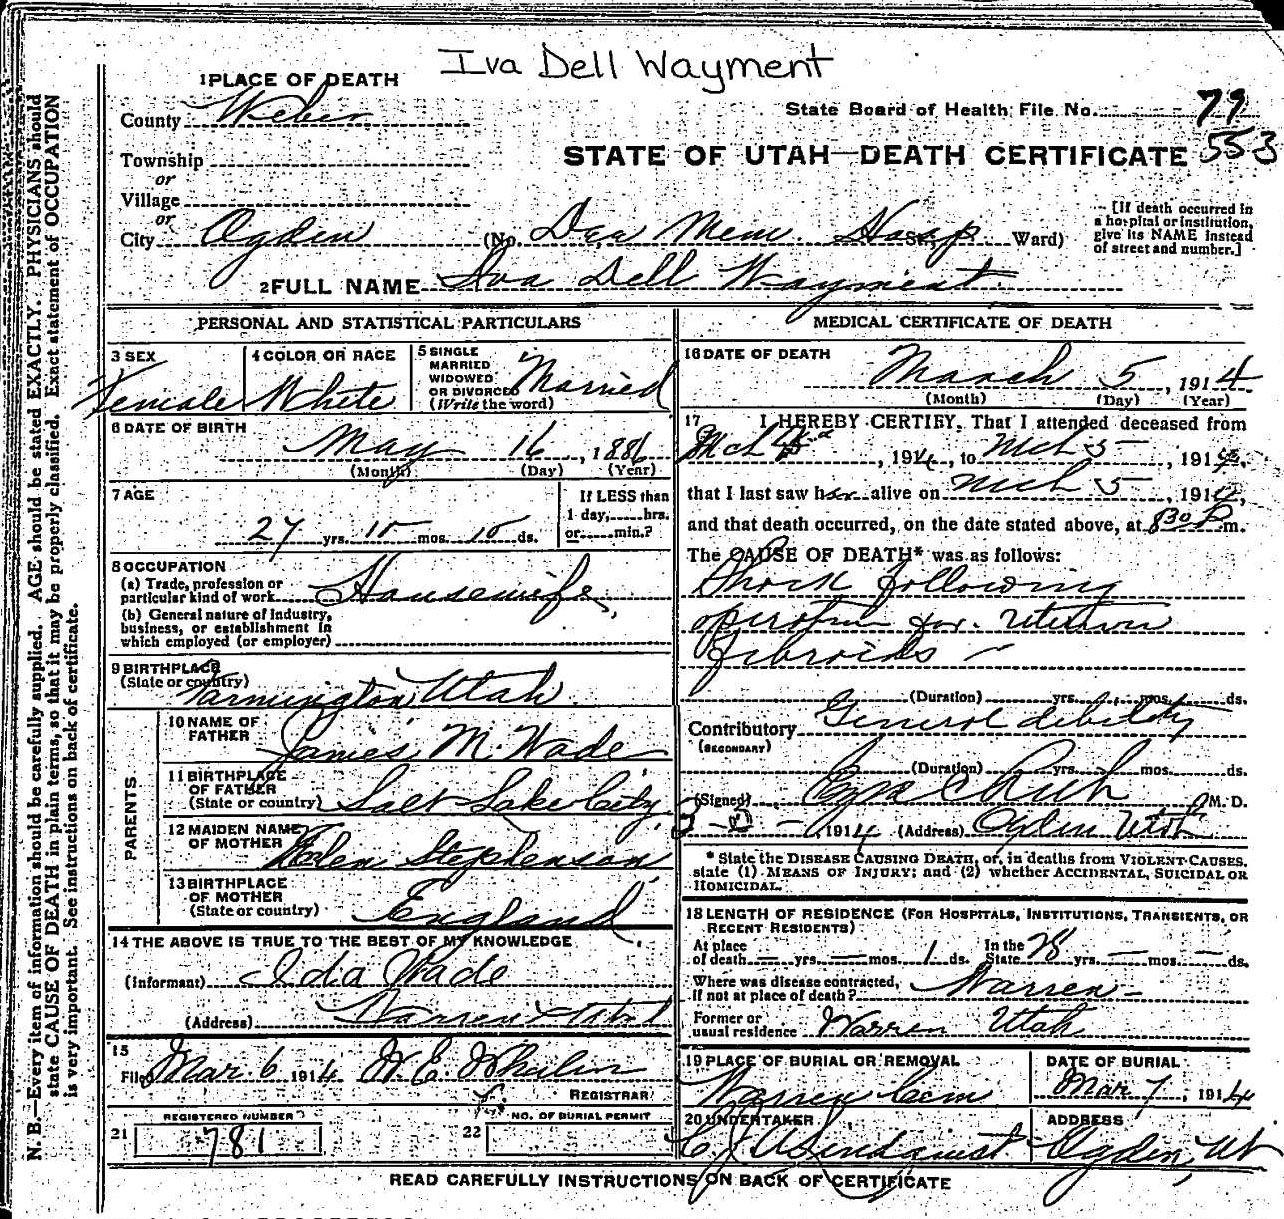 Iva Dell Wayment
1 PLACE OF DEATH
County Weber
State Board of Health File No. 79
553
STATE OF UTAH—DEATH CERTIFICATE
Township
or
Village
or
City Ogden (No. Dee Mem Hosp St. Ward)
[If death occurred in
a hospital or institution,
give its NAME instead
of street and number.]
2 FULL NAME Iva Dell Wayment
PERSONAL AND STATISTICAL PARTICULARS
3 SEX
Female
4 COLOR OR RACE
White
5 SINGLE
MARRIED
WIDOWED
OR DIVORCED
(Write the word)
Married
6 DATE OF BIRTH
May 16, 1886
(Month) (Day) (Year)
7 AGE
27 yrs. mos. ds.
If LESS than
1 day, hrs.
or min.?
8 OCCUPATION
(a) Trade, profession or
particular kind of work Housewife
(b) General nature of industry,
business, or establishment in
which employed (or employer)
9 BIRTHPLACE
(State or country)
Farmington Utah
PARENTS
10 NAME OF
FATHER
James M. Wade
11 BIRTHPLACE
OF FATHER
(State or country) Salt Lake City
12 MAIDEN NAME
OF MOTHER
Helen Stephenson
13 BIRTHPLACE
OF MOTHER
(State or country) England
14 THE ABOVE IS TRUE TO THE BEST OF MY KNOWLEDGE
(Informant) Ida Wade
(Address) Warren Utah
15
Filed Mar. 6 1914 W. E. Whalin
REGISTRAR
REGISTERED NUMBER
21 781
NO. OF BURIAL PERMIT
22
MEDICAL CERTIFICATE OF DEATH
16 DATE OF DEATH
March 5, 1914
(Month) (Day) (Year)
17 I HEREBY CERTIFY, That I attended deceased from
Mch , 1914, to Mch 5, 1914,
that I last saw her alive on Mch 5, 1914,
and that death occurred, on the date stated above, at 830 P m.
The CAUSE OF DEATH* was as follows:
Shock following
operation for uterine
fibroids —
(Duration) yrs. mos. ds.
Contributory General debility
(SECONDARY)
(Duration) yrs. mos. ds.
(Signed) Rich M. D.
1914 (Address) Ogden Utah
* State the DISEASE CAUSING DEATH, or, in deaths from VIOLENT CAUSES,
state (1) MEANS OF INJURY; and (2) whether ACCIDENTAL, SUICIDAL OR
HOMICIDAL.
18 LENGTH OF RESIDENCE (FOR HOSPITALS, INSTITUTIONS, TRANSIENTS, OR
RECENT RESIDENTS)
At place
of death — yrs. — mos. 1 ds.
In the
State 28 yrs. — mos. — ds.
Where was disease contracted,
if not at place of death? Warren —
Former or
usual residence Warren Utah
19 PLACE OF BURIAL OR REMOVAL
Warren Cem
DATE OF BURIAL
Mar 7, 1914
20 UNDERTAKER
Lindquist
ADDRESS
Ogden, Ut
READ CAREFULLY INSTRUCTIONS ON BACK OF CERTIFICATE
N. B.—Every item of information should be carefully supplied. AGE should be stated EXACTLY. PHYSICIANS should
state CAUSE OF DEATH in plain terms, so that it may be properly classified. Exact statement of OCCUPATION
is very important. See instructions on back of certificate.